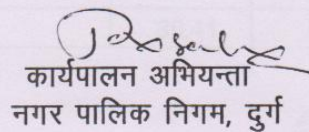 कार्यपालन अभियन्ता
नगर पालिक निगम, दुर्ग